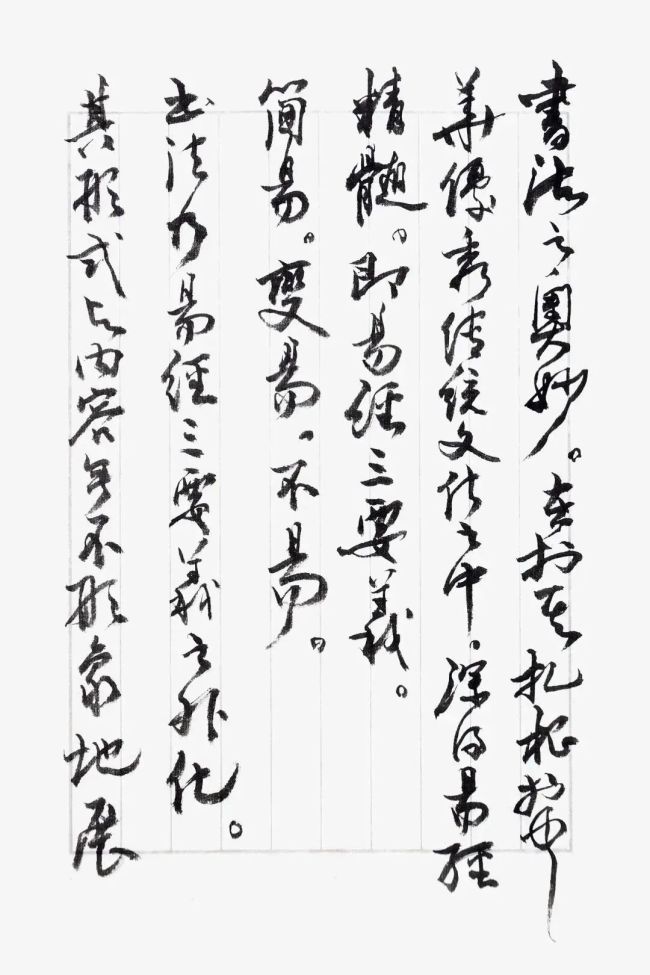 書法之奧妙。在於其扎根於中
華優秀傳統文化之中。深得易經
精髓。即易經三要義。
簡易。變易。不易。
书法乃易經三要義之外化。
其形式与内容无不形象地展